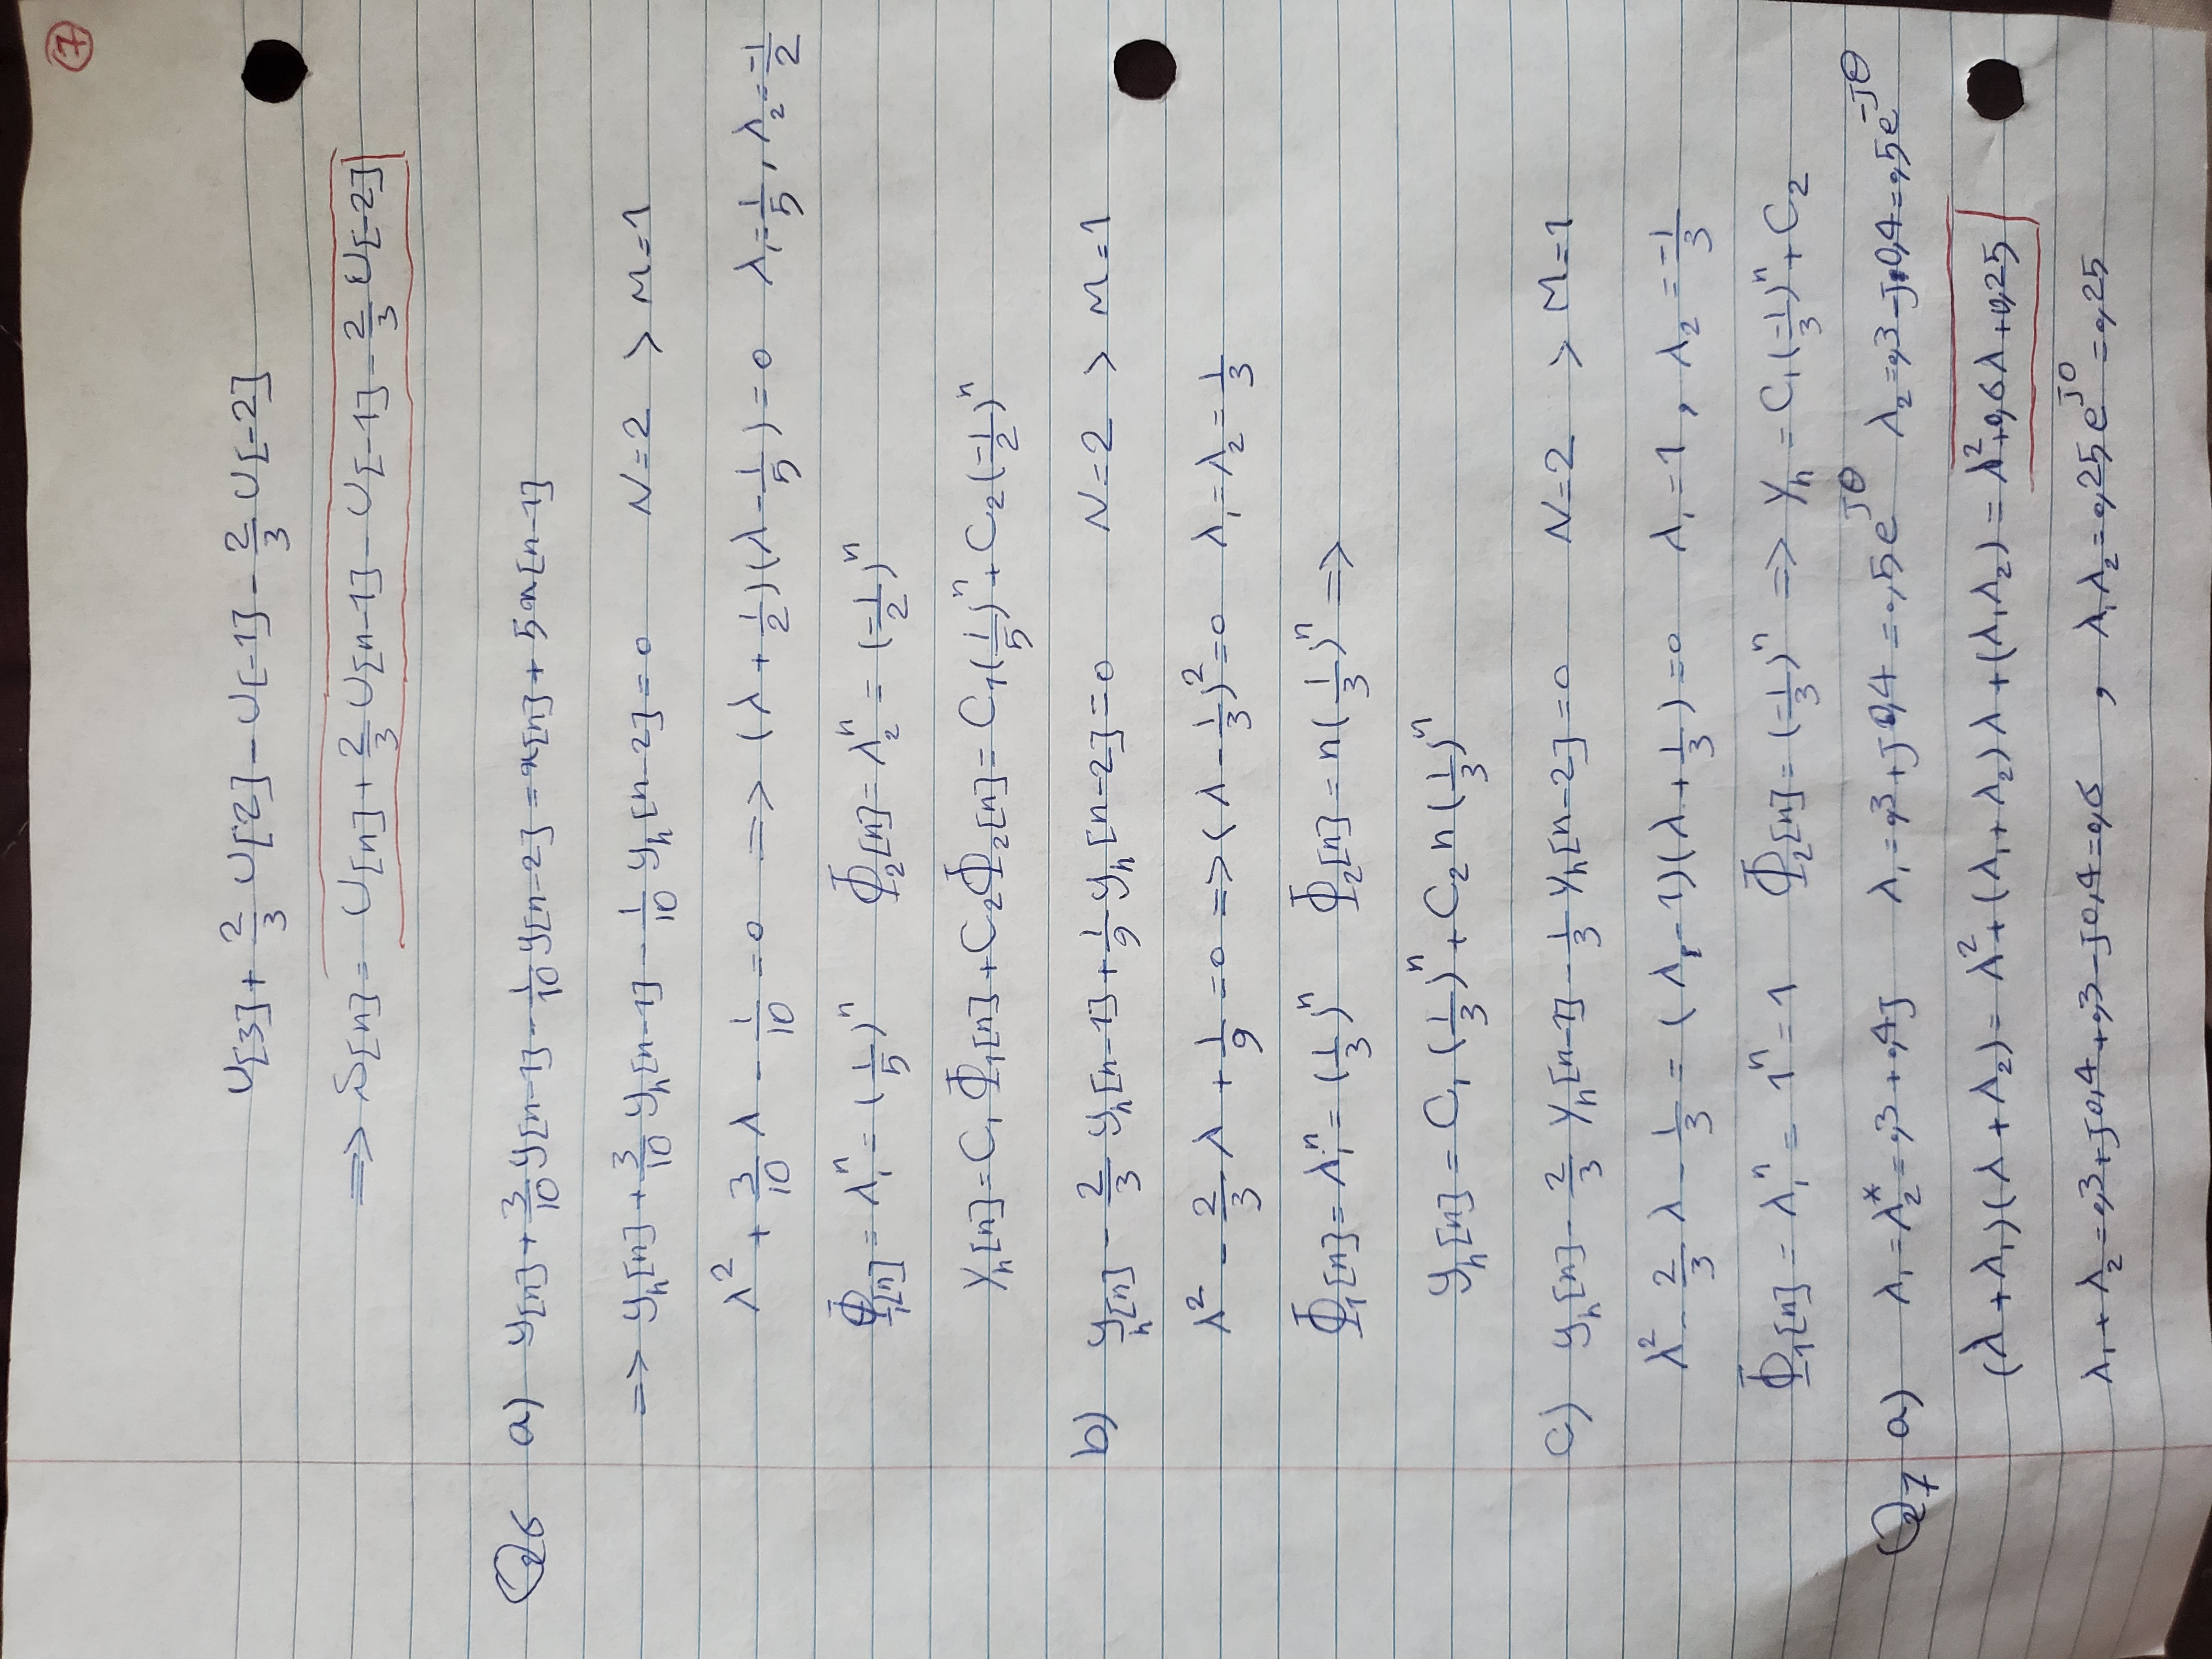 7
u[3] + 2/3 u[2] - u[-1] - 2/3 u[-2]
=> s[n] = u[n] + 2/3 u[n-1] - u[-1] - 2/3 u[-2]
Q6 a) y[n] + 3/10 y[n-1] - 1/10 y[n-2] = x[n] + 5x[n-1]
=> yₕ[n] + 3/10 yₕ[n-1] - 1/10 yₕ[n-2] = 0 N=2 > M=1
λ² + 3/10 λ - 1/10 = 0 => (λ + 1/2)(λ - 1/5) = 0 λ₁ = 1/5, λ₂ = -1/2
Φ₁[n] = λ₁ⁿ = (1/5)ⁿ Φ₂[n] = λ₂ⁿ = (-1/2)ⁿ
yₕ[n] = C₁Φ₁[n] + C₂Φ₂[n] = C₁(1/5)ⁿ + C₂(-1/2)ⁿ
b) yₕ[n] - 2/3 yₕ[n-1] + 1/9 yₕ[n-2] = 0 N=2 > M=1
λ² - 2/3 λ + 1/9 = 0 => (λ - 1/3)² = 0 λ₁ = λ₂ = 1/3
Φ₁[n] = λ₁ⁿ = (1/3)ⁿ Φ₂[n] = n(1/3)ⁿ =>
yₕ[n] = C₁(1/3)ⁿ + C₂n(1/3)ⁿ
c) yₕ[n] - 2/3 yₕ[n-1] - 1/3 yₕ[n-2] = 0 N=2 > M=1
λ² - 2/3 λ - 1/3 = (λ₁ - 1)(λ + 1/3) = 0 λ₁ = 1, λ₂ = -1/3
Φ₁[n] = λ₁ⁿ = 1ⁿ = 1 Φ₂[n] = (-1/3)ⁿ => yₕ = C₁(-1/3)ⁿ + C₂
Q7 a) λ₁ = λ₂* = 0,3 + 0,4J λ₁ = 0,3 + J0,4 = 0,5e^Jθ λ₂ = 0,3 - J0,4 = 0,5e^-Jθ
(λ + λ₁)(λ + λ₂) = λ² + (λ₁ + λ₂)λ + (λ₁λ₂) = λ² + 0,6λ + 0,25
λ₁ + λ₂ = 0,3 + J0,4 + 0,3 - J0,4 = 0,6 , λ₁λ₂ = 0,25e^J0 = 0,25